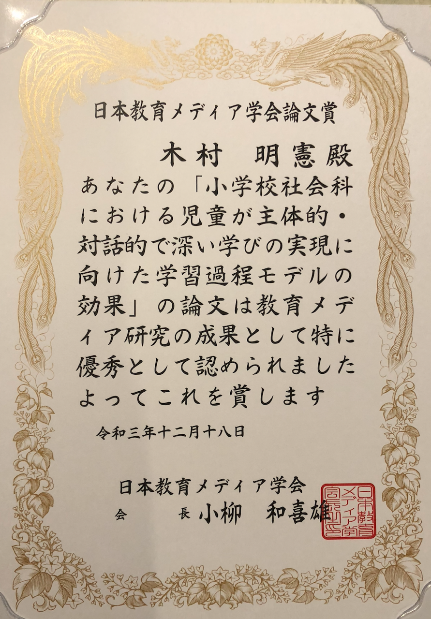 日本教育メディア学会論文賞
木村 明憲殿
あなたの「小学校社会科
における児童が主体的・
対話的で深い学びの実現に
向けた学習過程モデルの
効果」の論文は教育メデ
ィア研究の成果として特に
優秀として認められました
よってこれを賞します
令和三年十二月十八日
日本教育メディア学会
会 長 小柳 和喜雄
日本教育
メディア学